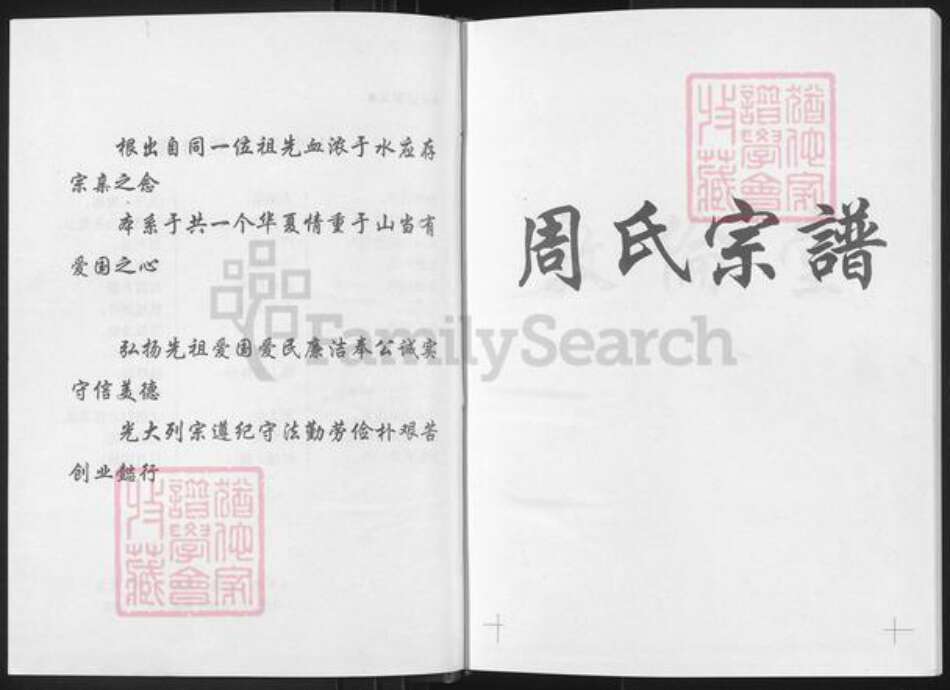 根出自同一位祖先血浓于水应存
宗亲之念
本系于共一个华夏情重于山当有
爱国之心
弘扬先祖爱国爱民廉洁奉公诚实
守信美德
光大列宗遵纪守法勤劳俭朴艰苦
创业懿行
猶他家
譜學會
收藏
周氏宗譜
猶他家
譜學會
收藏
FamilySearch